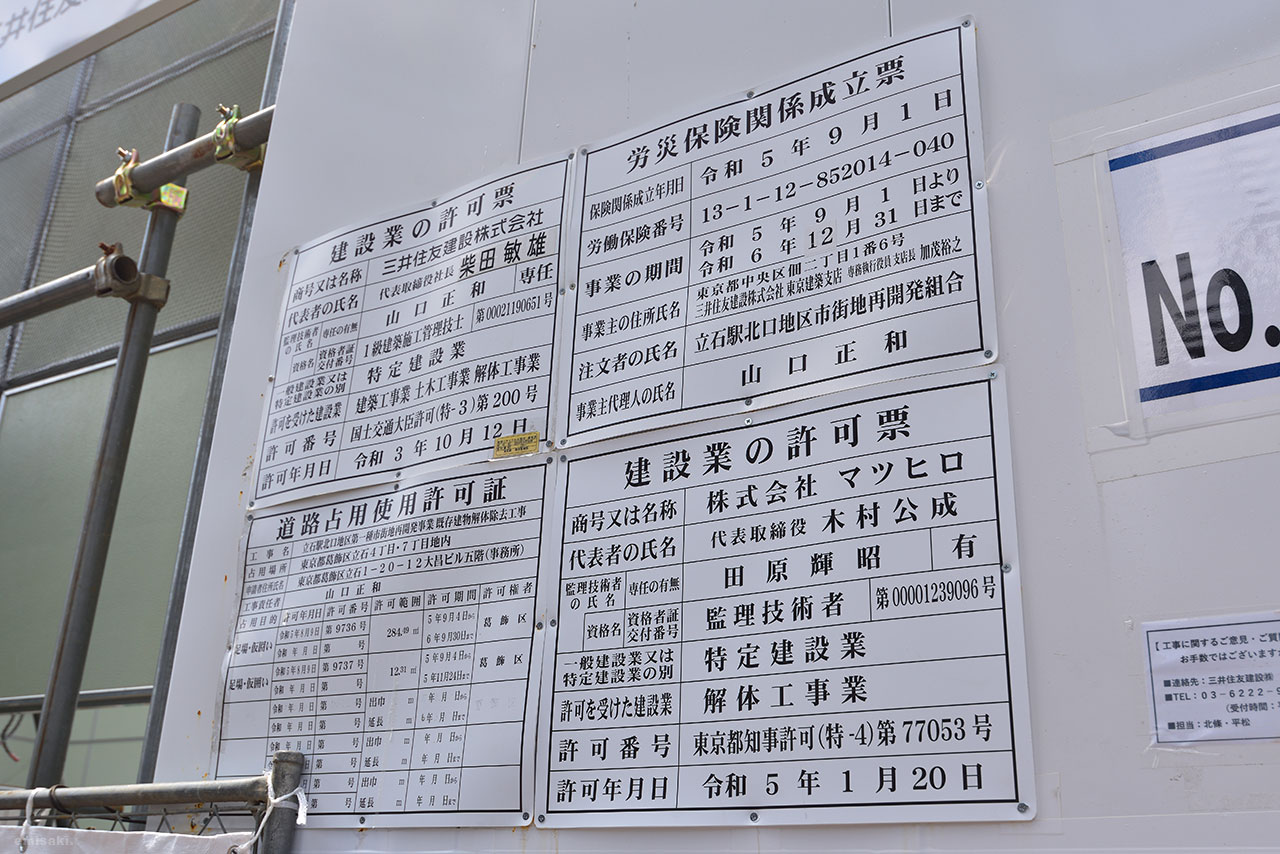 三井住友
建設業の許可票
商号又は名称 三井住友建設株式会社
代表者の氏名 代表取締役社長 柴田敏雄
監理技術者の氏名 専任の有無 山口正和 専任
資格名 資格者証交付番号 1級建築施工管理技士 第00021190651号
一般建設業又は特定建設業の別 特定建設業
許可を受けた建設業 建築工事業 土木工事業 解体工事業
許可番号 国土交通大臣許可(特-3)第200号
許可年月日 令和3年10月12日
労災保険関係成立票
保険関係成立年月日 令和5年9月1日
労働保険番号 13-1-12-852014-040
事業の期間 令和5年9月1日より
令和6年12月31日まで
事業主の住所氏名 東京都中央区佃二丁目1番6号
三井住友建設株式会社 東京建築支店 専務執行役員支店長 加茂裕之
注文者の氏名 立石駅北口地区市街地再開発組合
事業主代理人の氏名 山口正和
道路占用使用許可証
工事名 立石駅北口地区第一種市街地再開発事業 既存建物解体除去工事
占用場所 東京都葛飾区立石4丁目・7丁目地内
申請者住所氏名 東京都葛飾区立石1-20-12大昌ビル五階(事務所)
工事責任者 山口正和
占用目的 許可年月日 許可番号 許可範囲 許可期間 許可権者
足場・仮囲い 令和5年8月9日 第9736号 284.49㎡ 5年9月4日から 葛飾区
令和 年 月 日 第 号 6年9月30日まで
足場・仮囲い 令和5年8月9日 第9737号 12.31㎡ 5年9月4日から 葛飾区
令和 年 月 日 第 号 5年11月24日まで
令和 年 月 日 第 号 出巾 m 年 月 日から
令和 年 月 日 第 号 延長 m 年 月 日まで
令和 年 月 日 第 号 出巾 m 年 月 日から
令和 年 月 日 第 号 延長 m 年 月 日まで
令和 年 月 日 第 号 出巾 m 年 月 日から
第 号 延長 m 年 月 日まで
建設業の許可票
商号又は名称 株式会社 マツヒロ
代表者の氏名 代表取締役 木村公成
監理技術者の氏名 専任の有無 田原輝昭 有
資格名 資格者証交付番号 監理技術者 第00001239096号
一般建設業又は特定建設業の別 特定建設業
許可を受けた建設業 解体工事業
許可番号 東京都知事許可(特-4)第77053号
許可年月日 令和5年1月20日
No.
【工事に関するご意見・ご質
お手数ではございますが
■連絡先:三井住友建設㈱
■TEL:03-6222-
(受付時間:
■担当:北條・平松
emisaki.